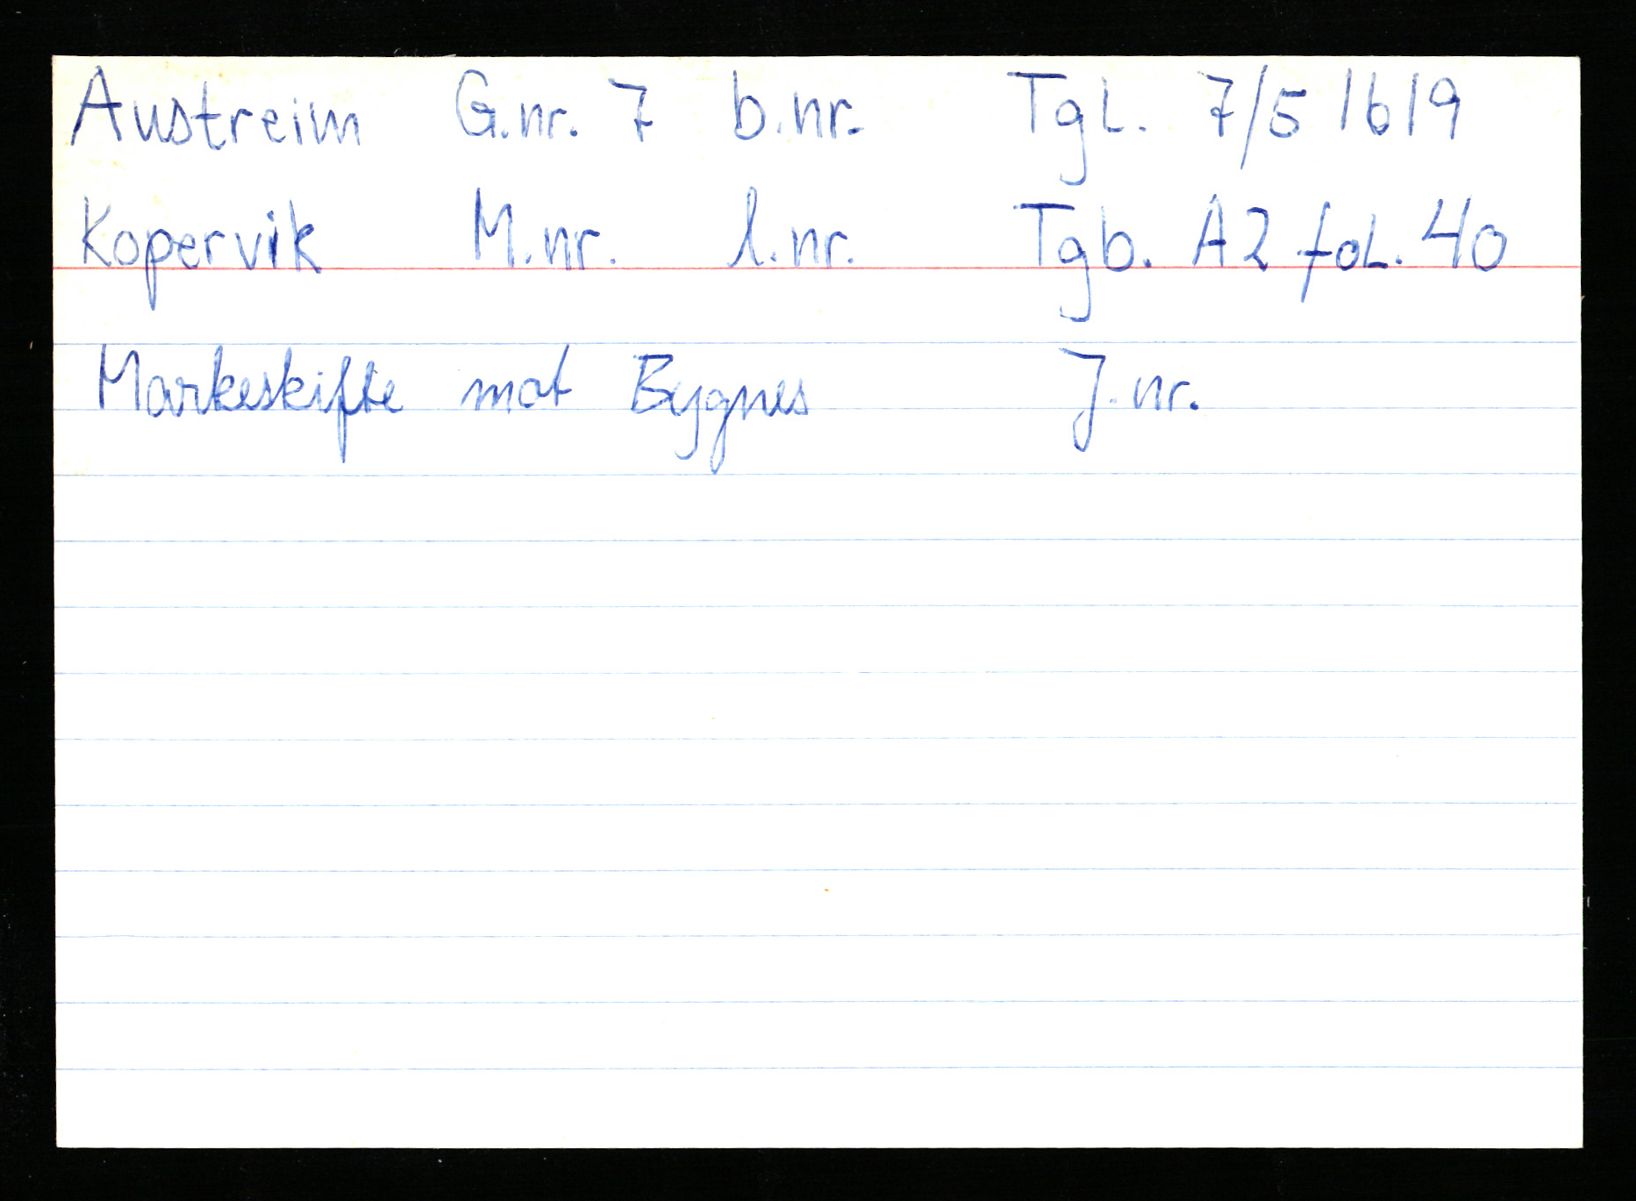 Austreim G.nr. 7 b.nr. Tgl. 7/5 1619
Kopervik M.nr. l.nr. Tgb. A2 fol. 40
Markeskifte mot Bygnes J.nr.